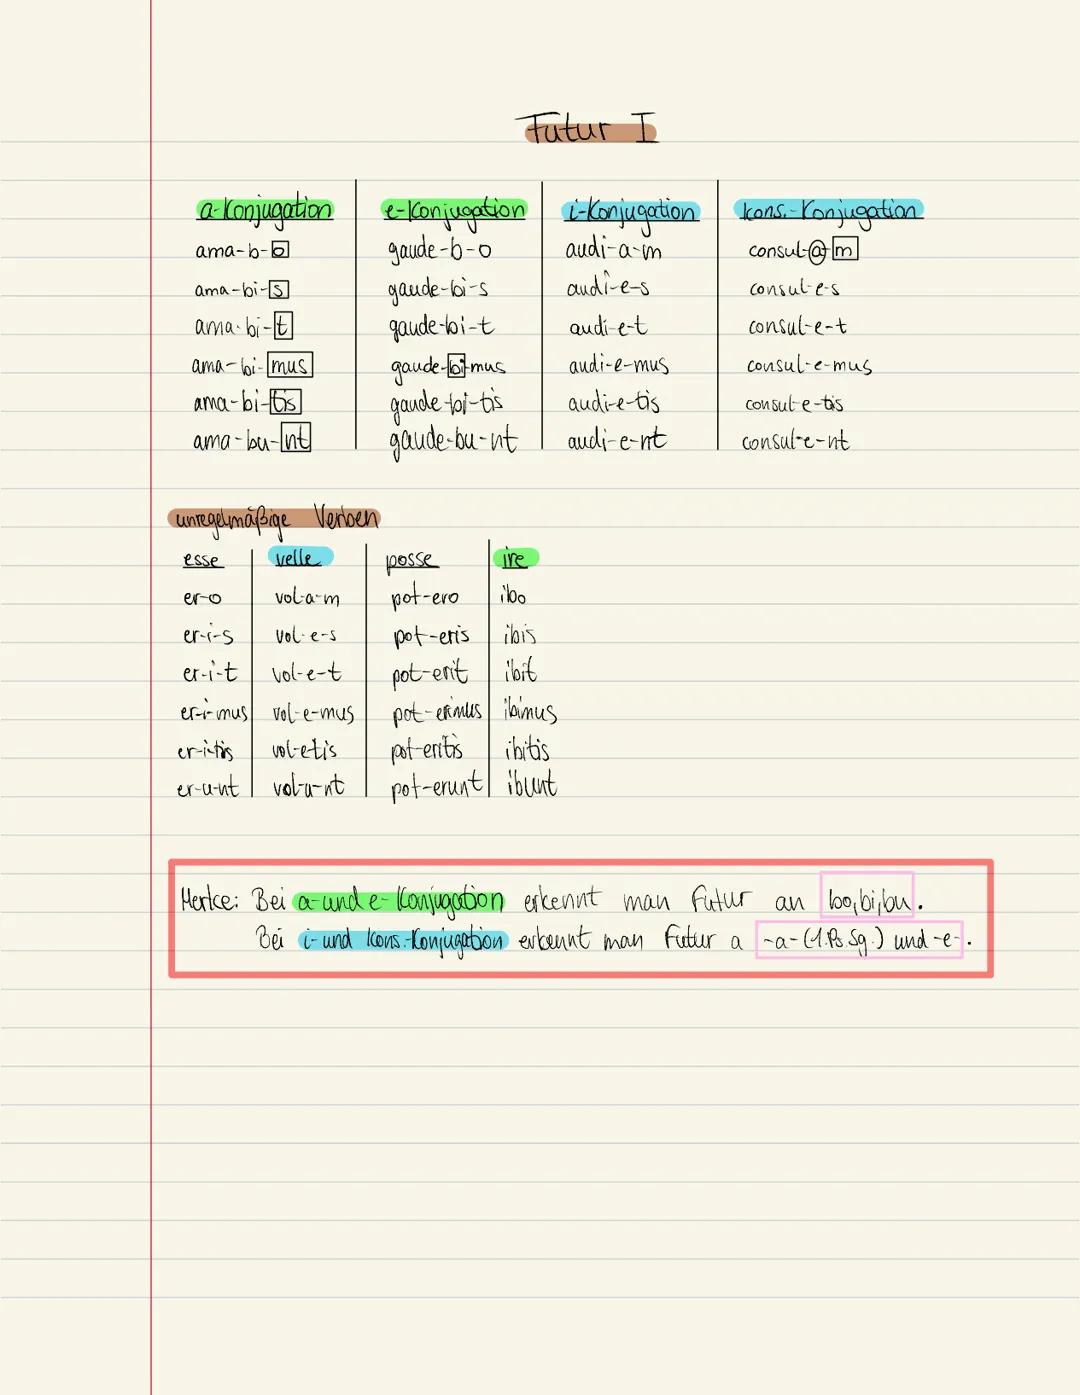 Futur I
a-Konjugation e-Konjugation i-Konjugation kons.-Konjugation
ama-b-o gaude-b-o audi-a-m consul-a-m
ama-bi-s gaude-bi-s audi-e-s consul-e-s
ama-bi-t gaude-bi-t audi-e-t consul-e-t
ama-bi-mus gaude-bi-mus audi-e-mus consul-e-mus
ama-bi-tis gaude-bi-tis audi-e-tis consul-e-tis
ama-bu-nt gaude-bu-nt audi-e-nt consul-e-nt
unregelmäßige Verben
esse velle posse ire
er-o vol-a-m pot-ero ibo
er-i-s vol-e-s pot-eris ibis
er-i-t vol-e-t pot-erit ibit
er-i-mus vol-e-mus pot-erimus ibimus
er-i-tis vol-etis pot-eritis ibitis
er-u-nt vol-u-nt pot-erunt ibunt
Merke: Bei a- und e- Konjugation erkennt man Futur an bo, bi, bu.
Bei i- und kons.-Konjugation erkennt man Futur a -a- (1.Ps.Sg.) und -e-.